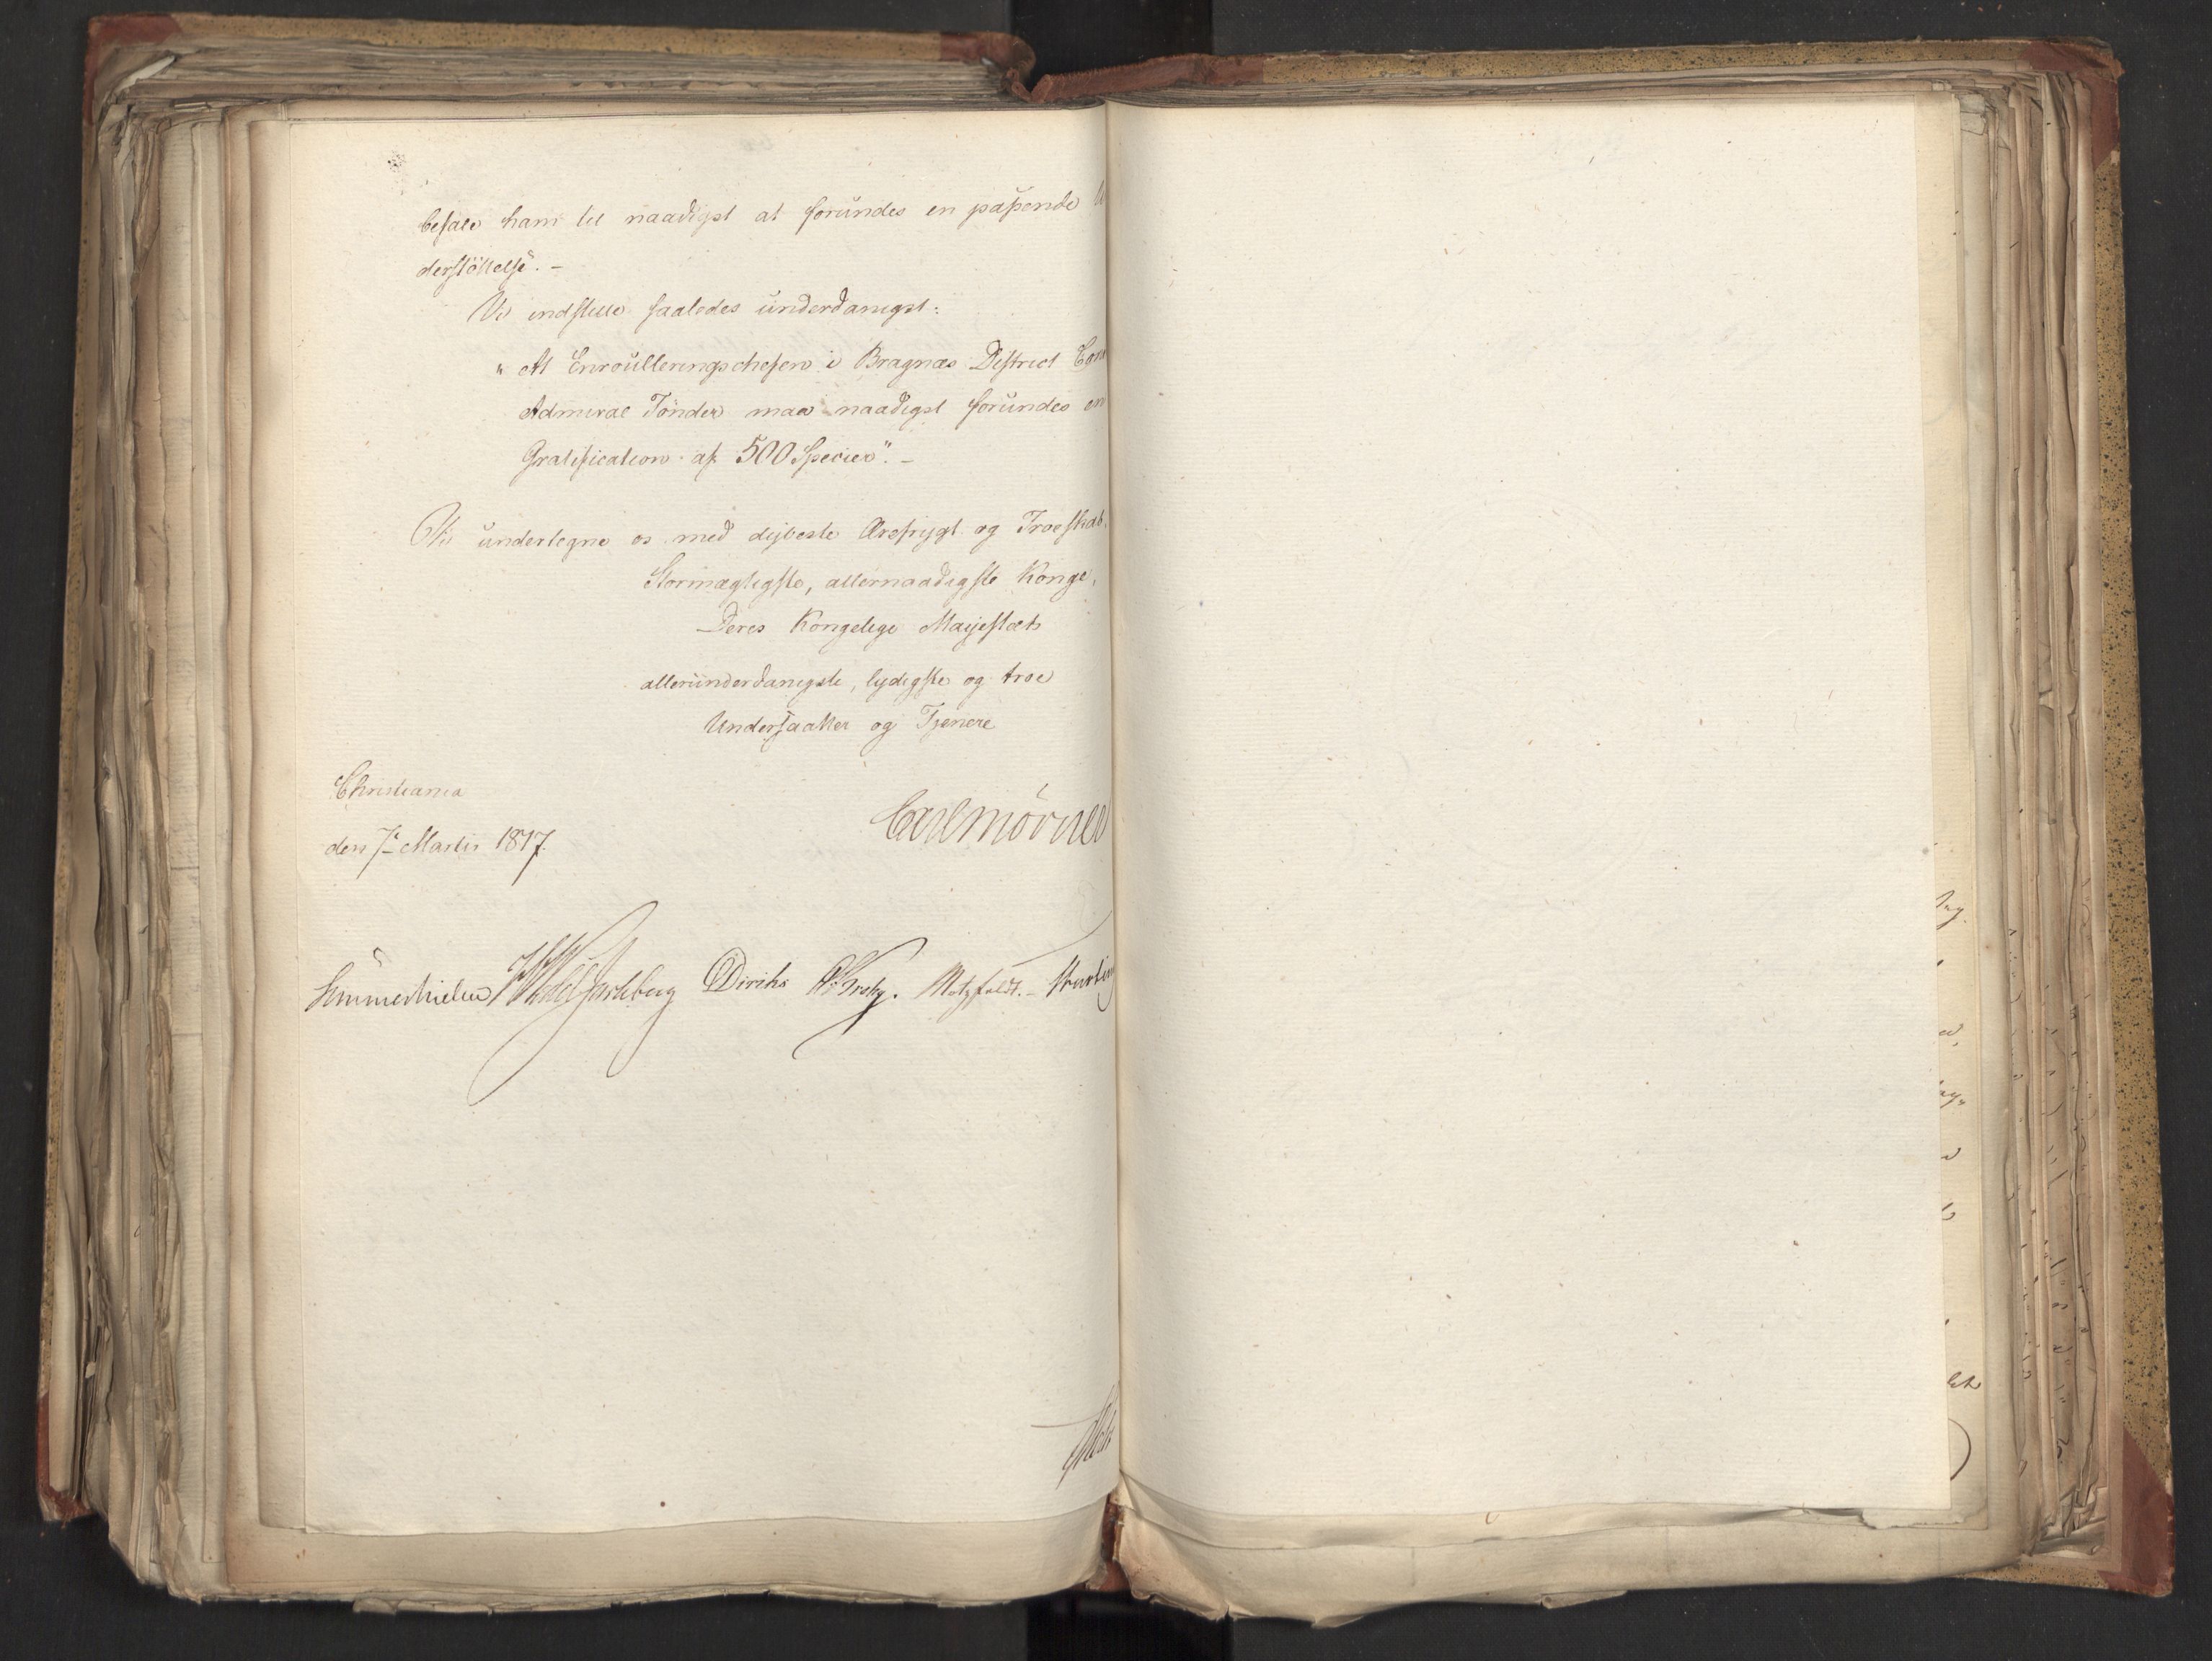 befale ham til naadigst at forundes en paßende U
derstöttelse. –
Vi indstille saaledes underdanigst:
" At Enroulleringschefen i Bragnæs District Con
Admiral Tönder maa naadigst forundes en
Gratification af 500 Species". –
Vi undertegne os med dybeste Ærefrygt og Troeskab.
Stormægtigste, allernaadigste Konge,
Deres Kongelige Majestæts
allerunderdanigste, lydigste og troe
Undersaatter og Tjenere
Christiania
den 7de Martii 1817.
Carl Mörner
Sommerhielm HWedel Jarlsberg CDiriks Krebs. Motzfeldt. –
Ing.